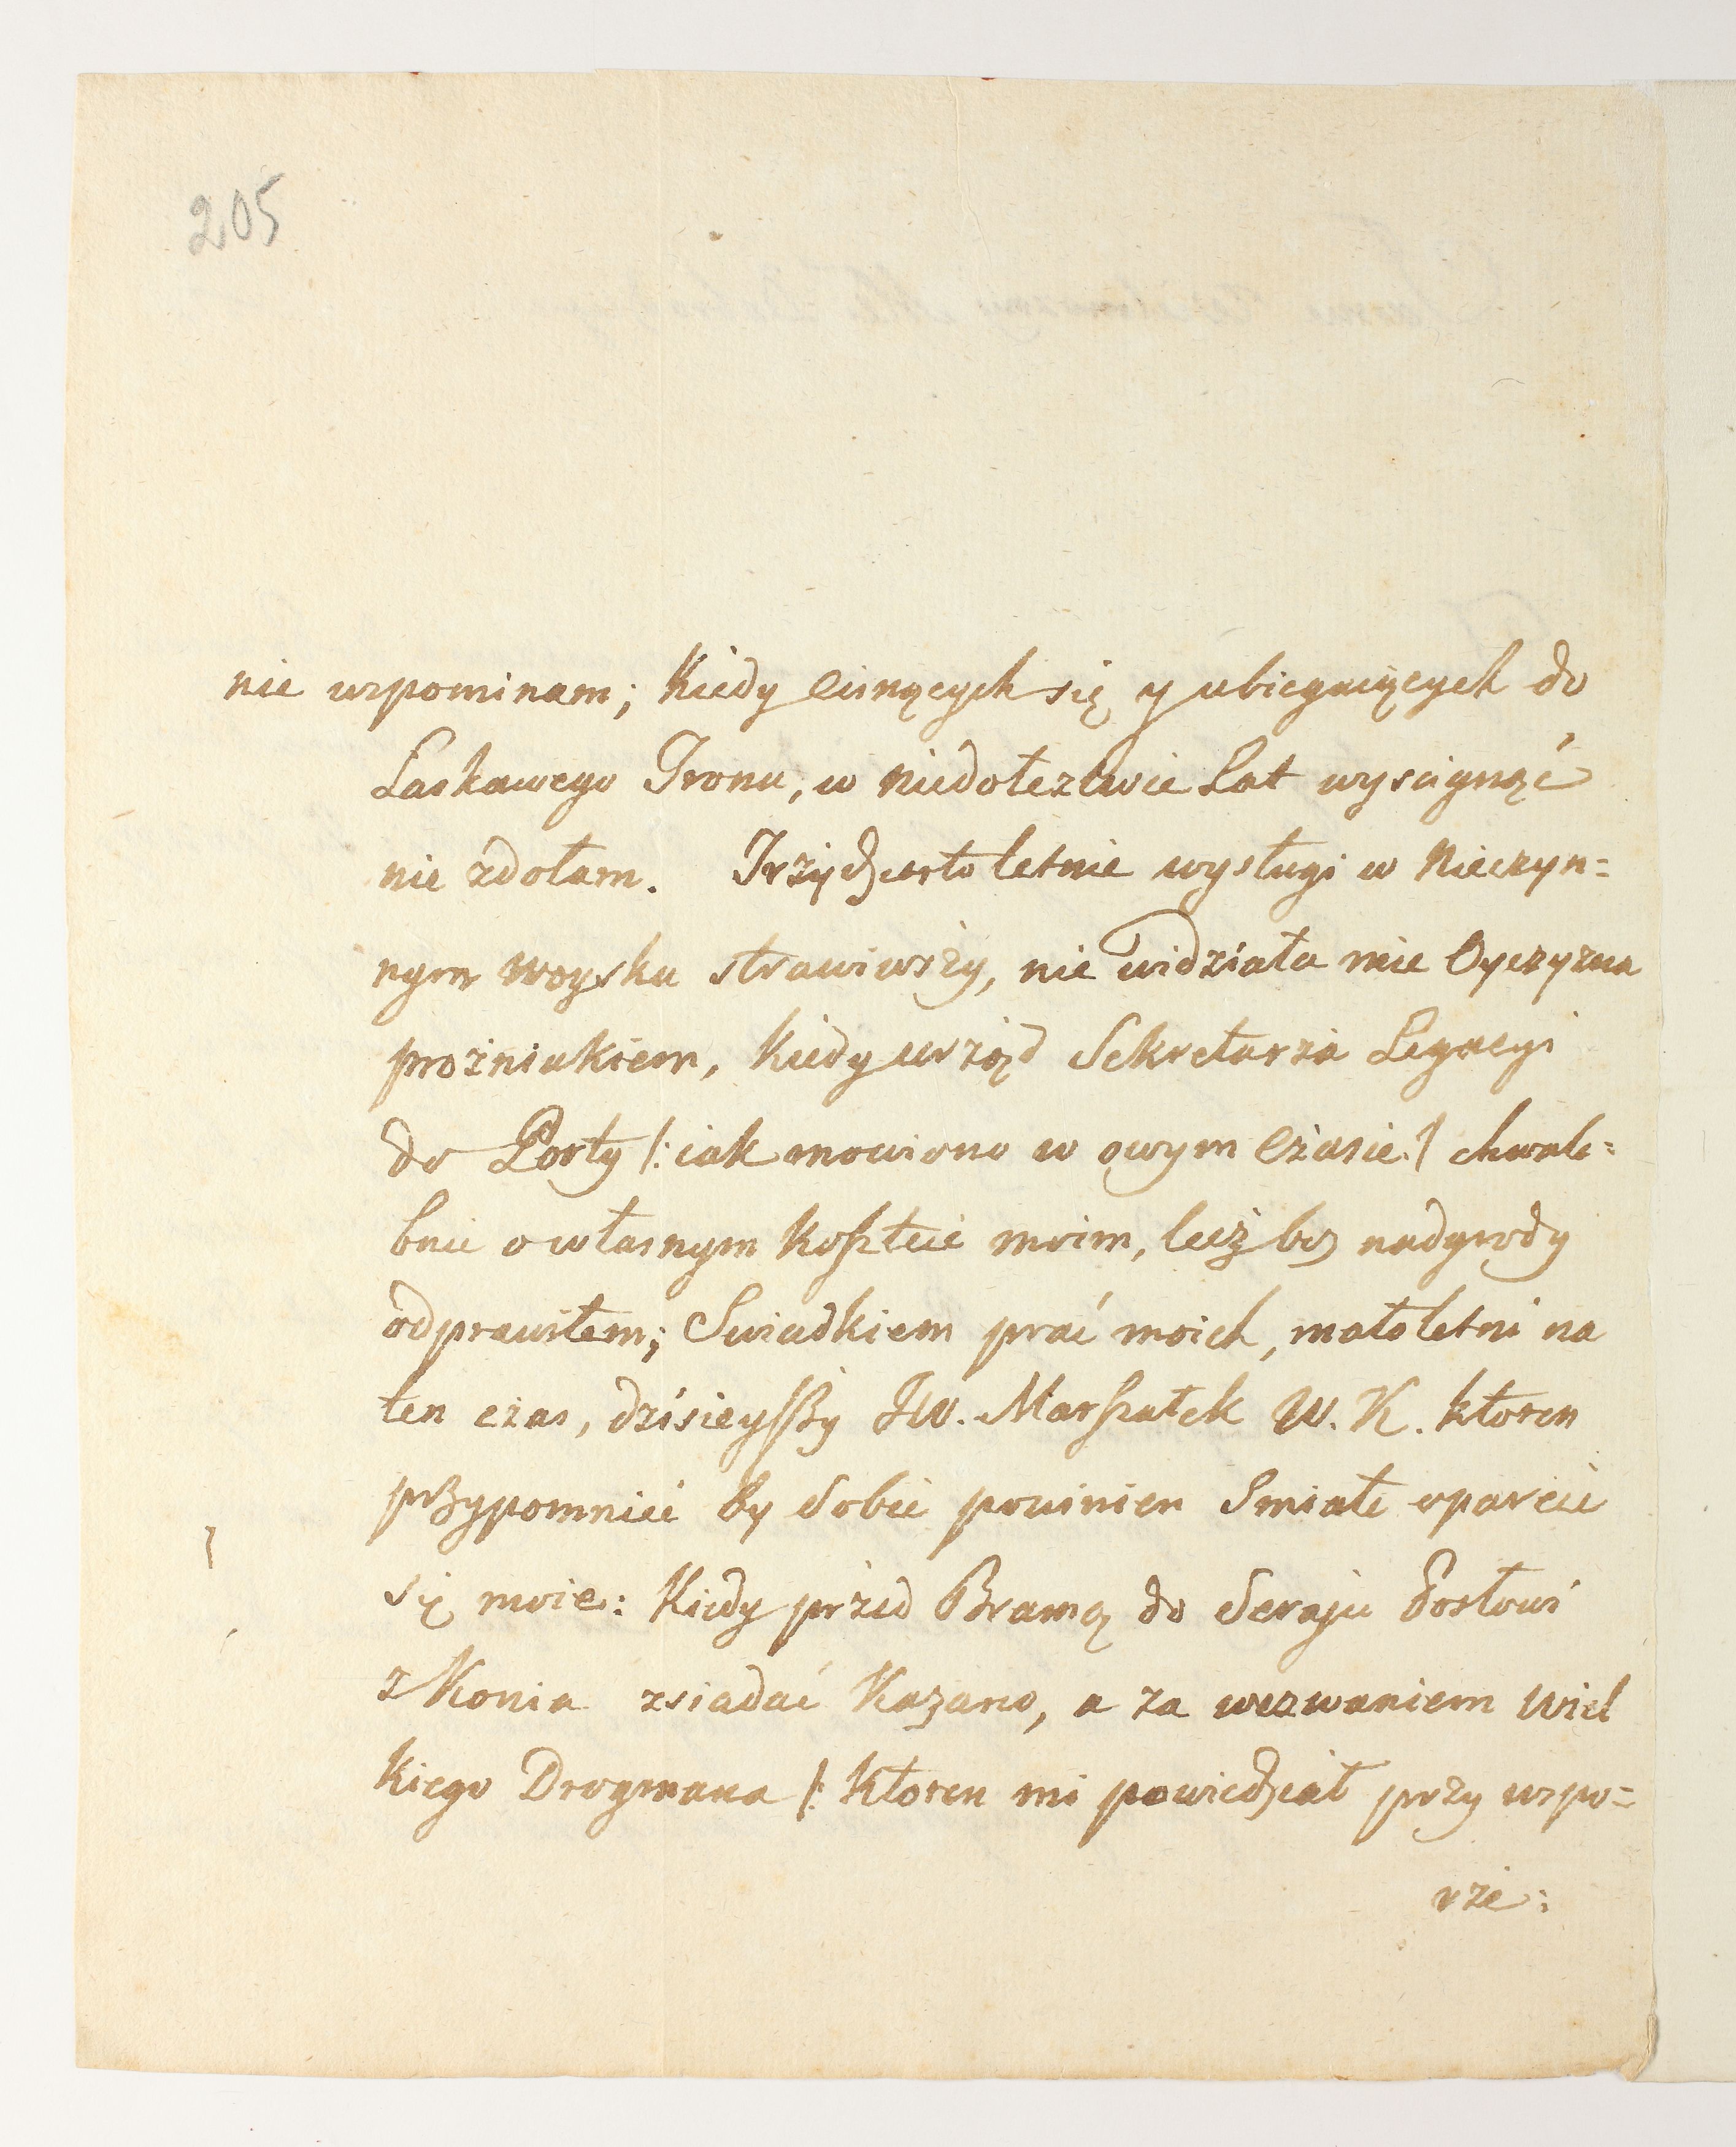 205
nie wspominam; Kiedy cisnących się y ubiegaiących do
Łaskawego Tronu, w niedołęztwie Lat wyscignąć
nie zdołam. Trzydziesto letnie wysługi w Nieczyn=
nym woysku strawiwszy, nie widziała mie Oyczyzna
prożniakiem, kiedy urząd Sekretarza Legacyi
do Porty /: iak mowiono w owym czasie :/ chwale=
bnie o własnym koszcie moim, lecz bez nadgrody
odprawiłem; Swiadkiem prać moich, małoletni na
ten czas, dzisieyszy JW. Marszałek W. K. ktoren
przypomnieć by sobie powinien Smiałe oparcie
się moie: Kiedy przed Bramą do Seraju Posłowi
z Konia zsiadać Kazano, a za wezwaniem Wiel
kiego Drogmana /: ktoren mi powiedział przy wspo=
rze: